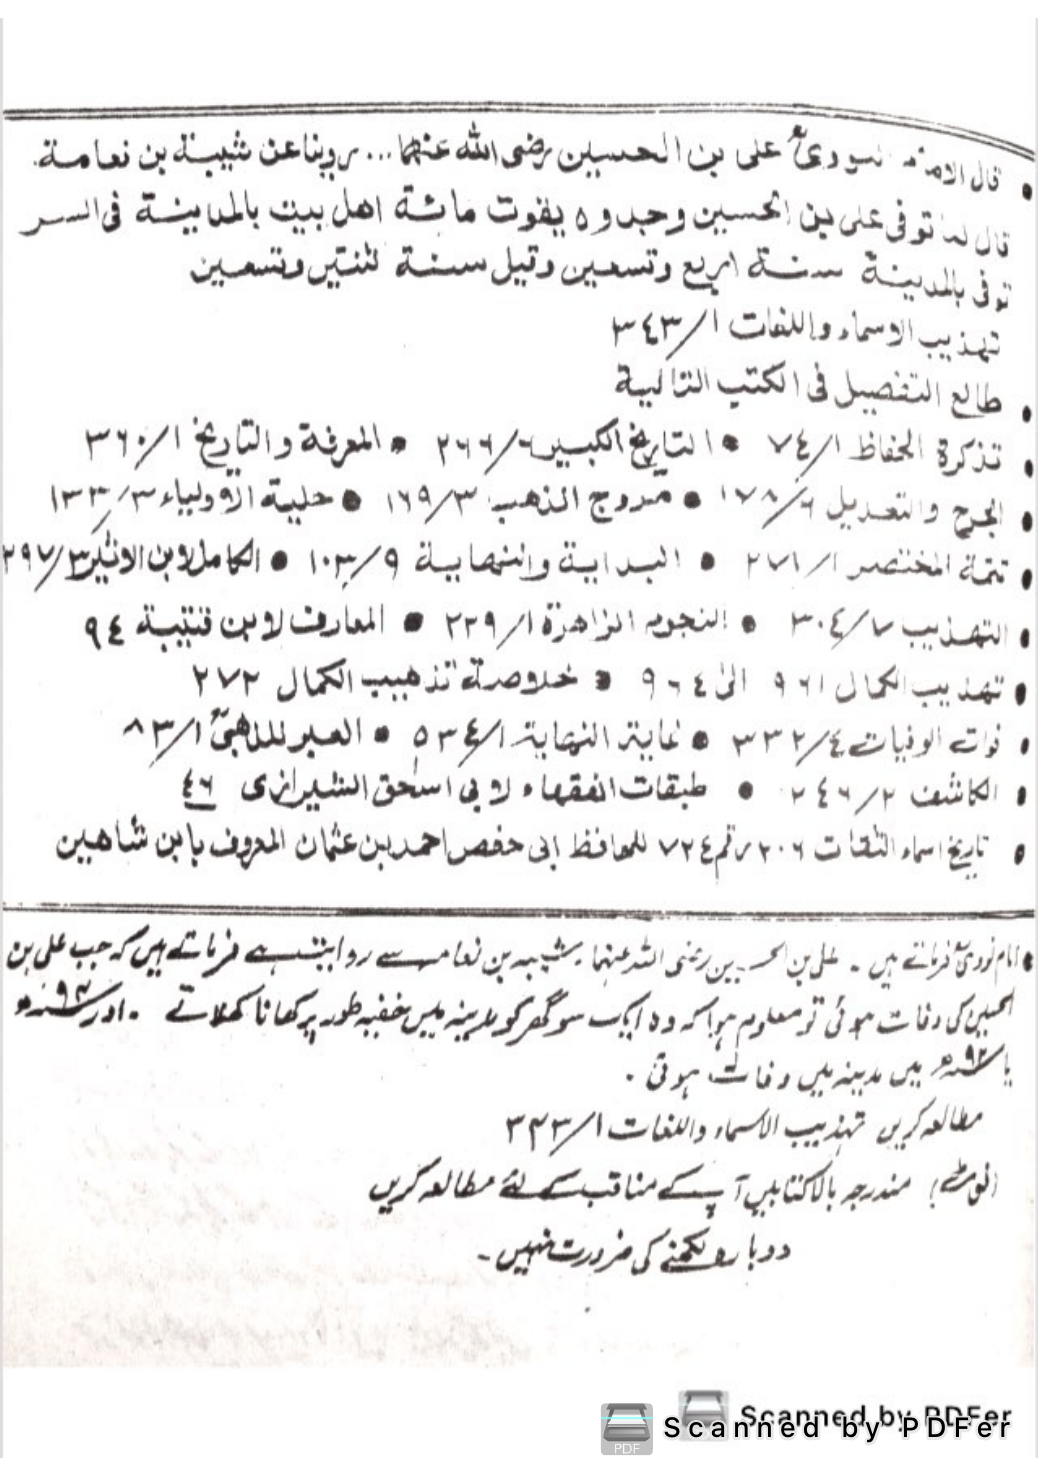 • قال الامام نووىؒ على بن الحسين رضى الله عنهما... روينا عن شيبة بن نعامة.
قال لما توفى على بن الحسين وجدوه يقوت مائة اهل بيت بالمدينة فى السر
توفى بالمدينة سنة اربع وتسعين وقيل سنة ثنتين وتسعين
تهذيب الاسماء واللغات ١/٣٤٣
• طالع التفصيل فى الكتب التالية
• تذكرة الحفاظ ١/٧٤ • التاريخ الكبير ٦/٢٦٦ • المعرفة والتاريخ ١/٣٦٠
• الجرح والتعديل ٦/١٧٨ • مروج الذهب ٣/١٦٩ • حلية الاولياء ٣/١٣٣
• تتمة المختصر ١/٢٧١ • البداية والنهاية ٩/١٠٣ • الكامل لابن الاثير ٣/٢٩٧
• التهذيب ٧/٣٠٤ • النجوم الزاهرة ١/٢٢٩ • المعارف لابن قتيبة ٩٤
• تهذيب الكمال ٩٦١ الى ٩٦٤ • خلاصة تذهيب الكمال ٢٧٢
• فوات الوفيات ٤/٣٣٢ • غاية النهاية ١/٥٣٤ • العبر للذهبىؒ ١/٨٣
• الكاشف ٢/٢٤٦ • طبقات الفقهاء لابى اسحق الشيرازى ٤٦
• تاريخ اسماء الثقات ٢٠٦ رقم ٧٢٤ للحافظ ابى حفص احمد بن عثمان المعروف بابن شاهين
• امام نوویؒ فرماتے ہیں ۔ علی بن الحسین رضی اللہ عنہما۔ شیبہ بن نعامہ سے روایت ہے فرماتے ہیں کہ جب علی بن
الحسین کی وفات ہوئی تو معلوم ہوا کہ وہ ایک سو گھر کو مدینہ میں خفیہ طور پر کھانا کھلاتے ۔ اور ۹۴ھ
یا ۹۲ھ میں مدینہ میں وفات ہوئی ۔
مطالعہ کریں تہذیب الاسماء واللغات ۱/۳۴۳
(نوٹ) مندرجہ بالا کتابیں آپ کے مناقب کے لئے مطالعہ کریں
دوبارہ لکھنے کی ضرورت نہیں ۔
Scanned by PDFer
Scanned by PDFer
PDF